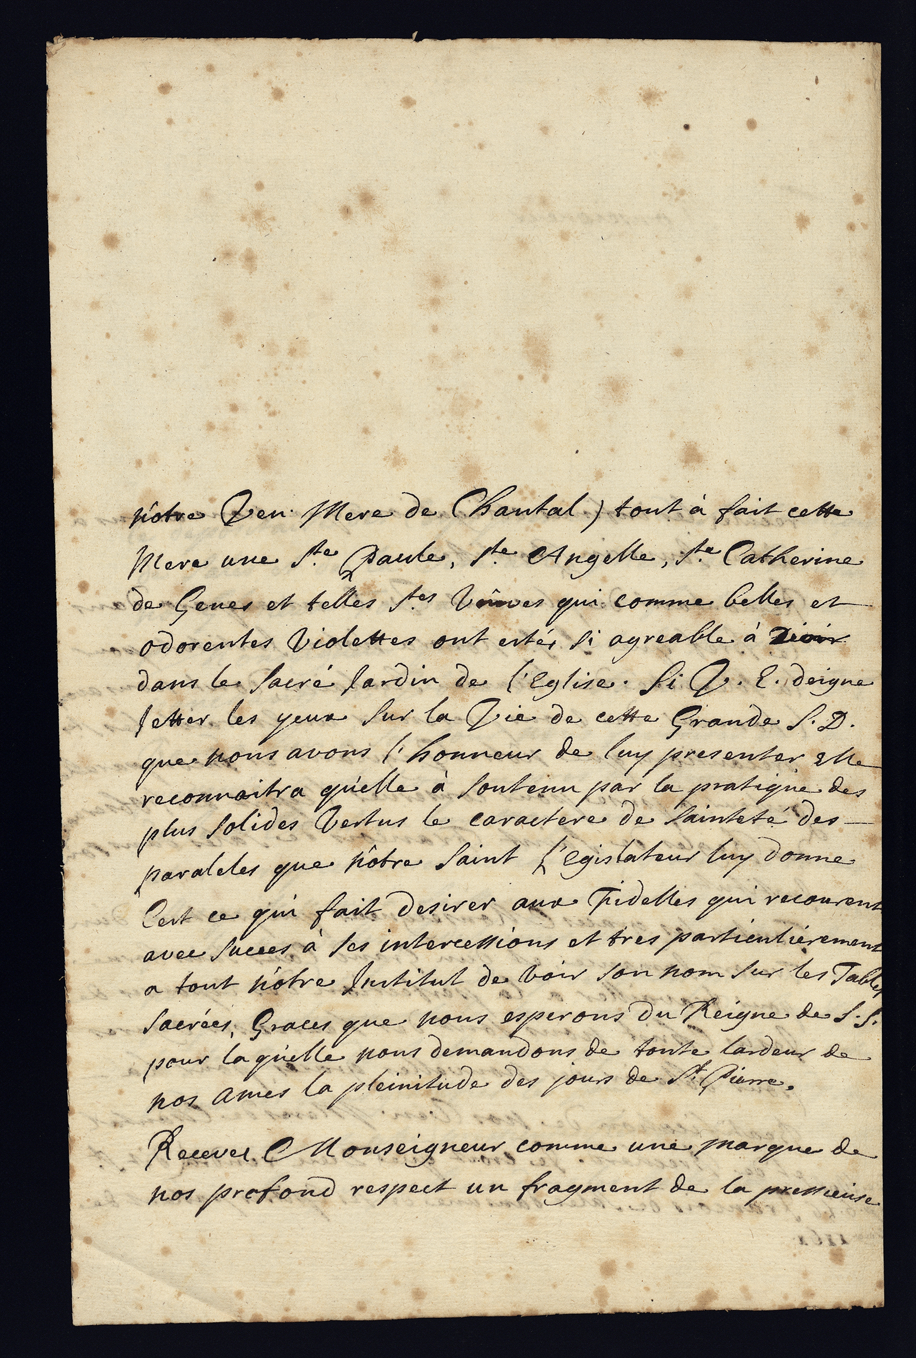 nôtre Ven. Mere de Chantal) tout à fait cette
Mere une Ste. Paule, Ste. Angelle, Ste. Catherine
de Genes et telles Stes. qui comme belles et
odorentes Violettes ont estés si agreable à
dans le Sacré Jardin de l'Eglise. Si V. E. deigne
Jetter les yeux sur la Vie de cette Grande S. D.
que nous avons l'honneur de luy presenter Elle
reconnaitra qu'elle à soutenu par la pratique des
plus solides Vertus le caractere de sainteté des
paraleles que nôtre Saint L'egislateur luy donne
C'est ce qui fait desirer aux Fidelles qui recourent
avec succes à ses intercessions et tres particuliérement
a tout nôtre Institut de voir son nom sur les Tables
sacrées, Graces que nous esperons du Reigne de S. S.
pour laqu'elle nous demandons de toute lardeur de
nos ames la pleinitude des jours de St. Pierre.
Recevez Monseigneur comme une marque de
nos profond respect un fragment de la pressieuse